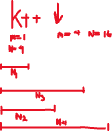 K++ ↓
n=1 n=4 N=16
N=9
N₁
N₃
N₂
N₄